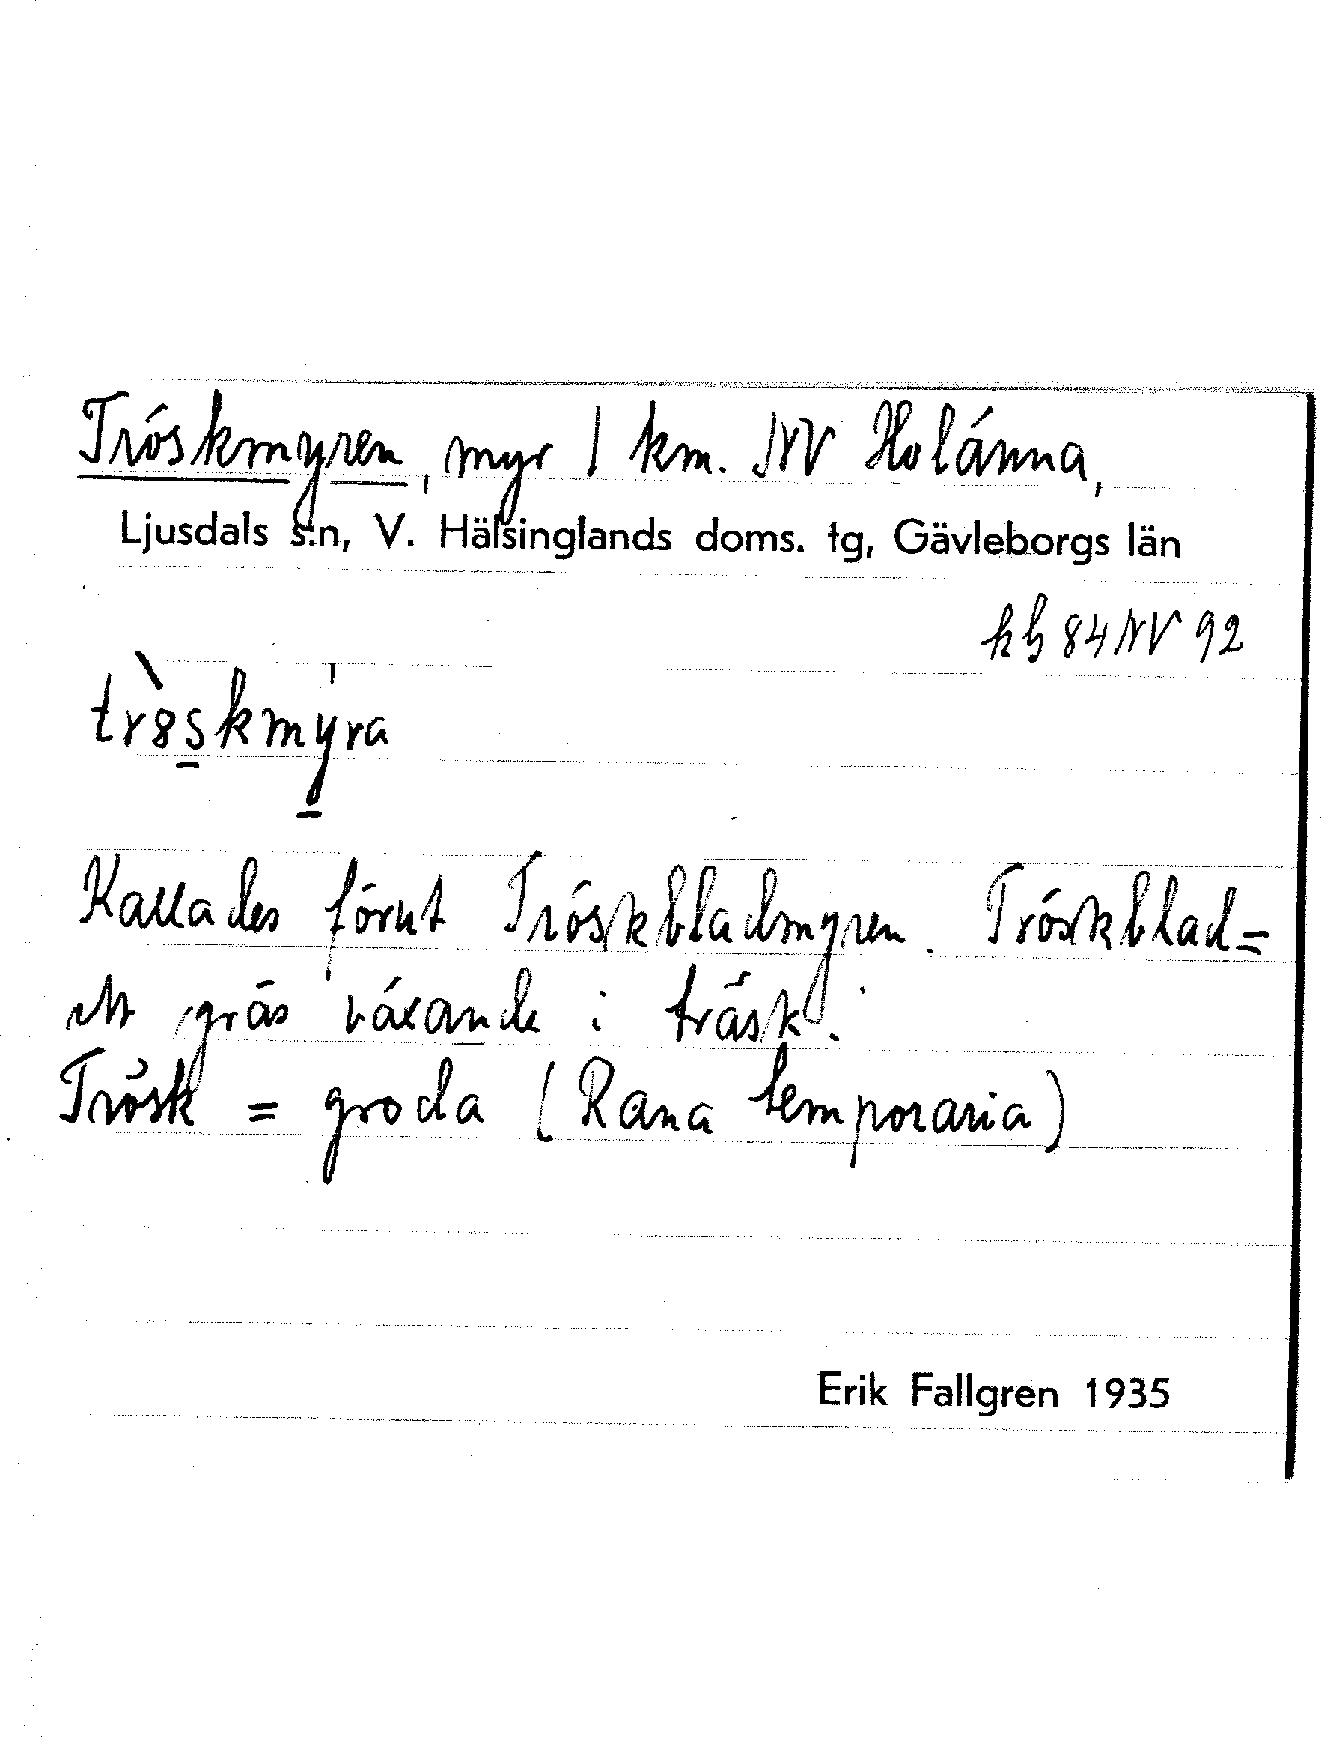 Tröskmyren, myr 1 km. NV Holänna,
Ljusdals s:n, V. Hälsinglands doms. tg, Gävleborgs län
kb 84 NV 92
trøskmyra
Kallades förut Tröskbladmyren. Tröskblad=
ett gräs växande i träsk.
Trösk = groda (Rana temporaria)
Erik Fallgren 1935